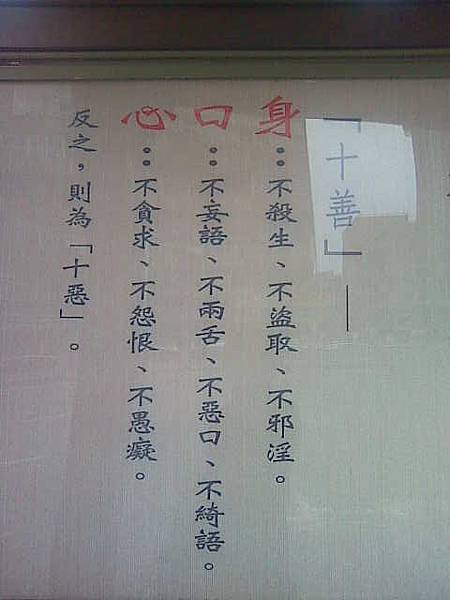 「十善」——
身：不殺生、不盜取、不邪淫。
口：不妄語、不兩舌、不惡口、不綺語。
心：不貪求、不怨恨、不愚癡。
反之，則為「十惡」。